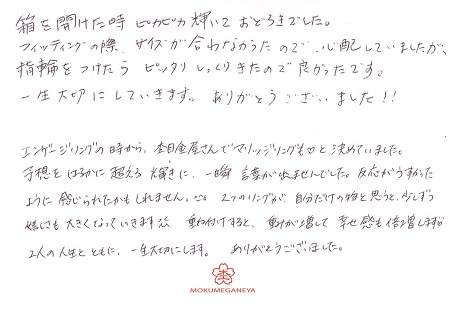 箱を開けた時 ピカピカ輝いて おどろきでした。
フィッティングの際、サイズが合わなかったので、心配していましたが、
指輪をつけたら ピッタリ しっくりきたので良かったです。
一生大切にしていきます。 ありがとうございました!!
エンゲージリングの時から、杢目金屋さんでマリッジリングも♡と決めていました。
予想をはるかに超える輝きに、一瞬 言葉が出ませんでした。反応がうすかった
ように感じられたかもしれません。 2つのリングが、自分だけの物と思うと、少しずつ
嬉しさも大きくなっていきます 重ね付けすると、重みが増して 幸せ感も倍増します
2人の人生とともに、一生大切にします。 ありがとうございました。
MOKUMEGANEYA